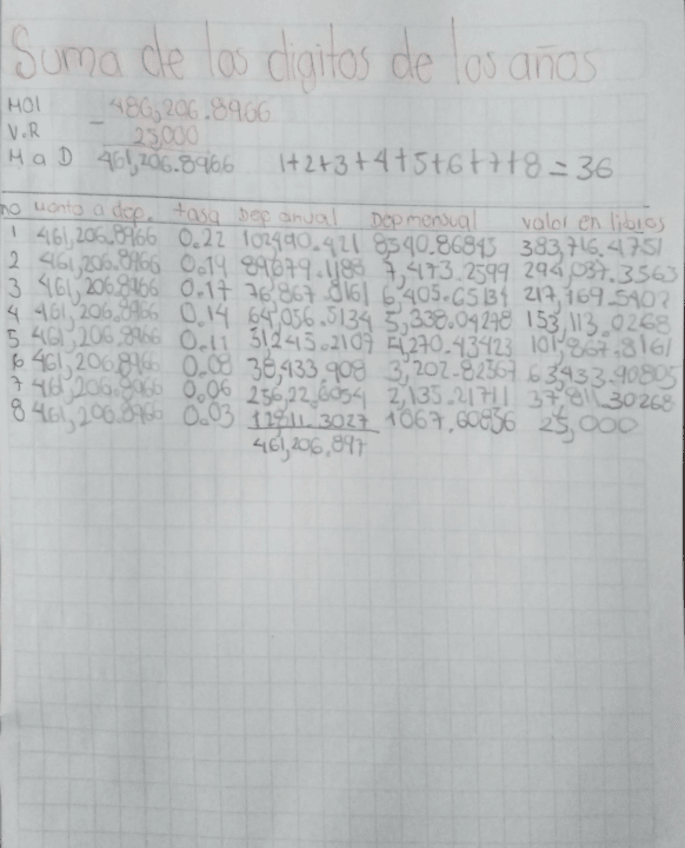 Suma de los digitos de los años
MOI 486,206.8966
V.R - 25,000
M a D 461,206.8966 1+2+3+4+5+6+7+8=36
no monto a dep. tasa Dep anual Dep mensual valor en libros
1 461,206.8966 0.22 102490.421 8,540.86845 383,716.4751
2 461,206.8966 0.19 89679.1188 7,473.2599 294,037.3563
3 461,206.8966 0.17 76,867.8161 6,405.65134 217,169.5402
4 461,206.8966 0.14 64,056.5134 5,338.04278 153,113.0268
5 461,206.8966 0.11 51245.2107 4,270.43423 101,867.8161
6 461,206.8966 0.08 38,433.908 3,202.82567 63,433.90805
7 461,206.8966 0.06 256,22.6054 2,135.21711 37,811.30268
8 461,206.8966 0.03 12811.3027 1067,60856 25,000
461,206,897